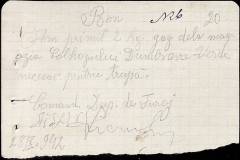 Bon No 6 20
Am primit 2 kg. gaz dela mag
azia Colhoznica Dumbrava Verde
necesar pentru trupă.
Comand. Dep. de Tunuri
28/X.942